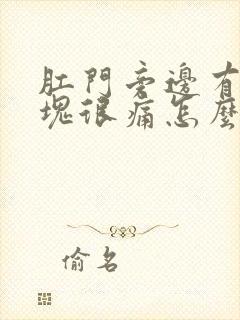 肛門旁邊有
塊很痛怎麼
偷名